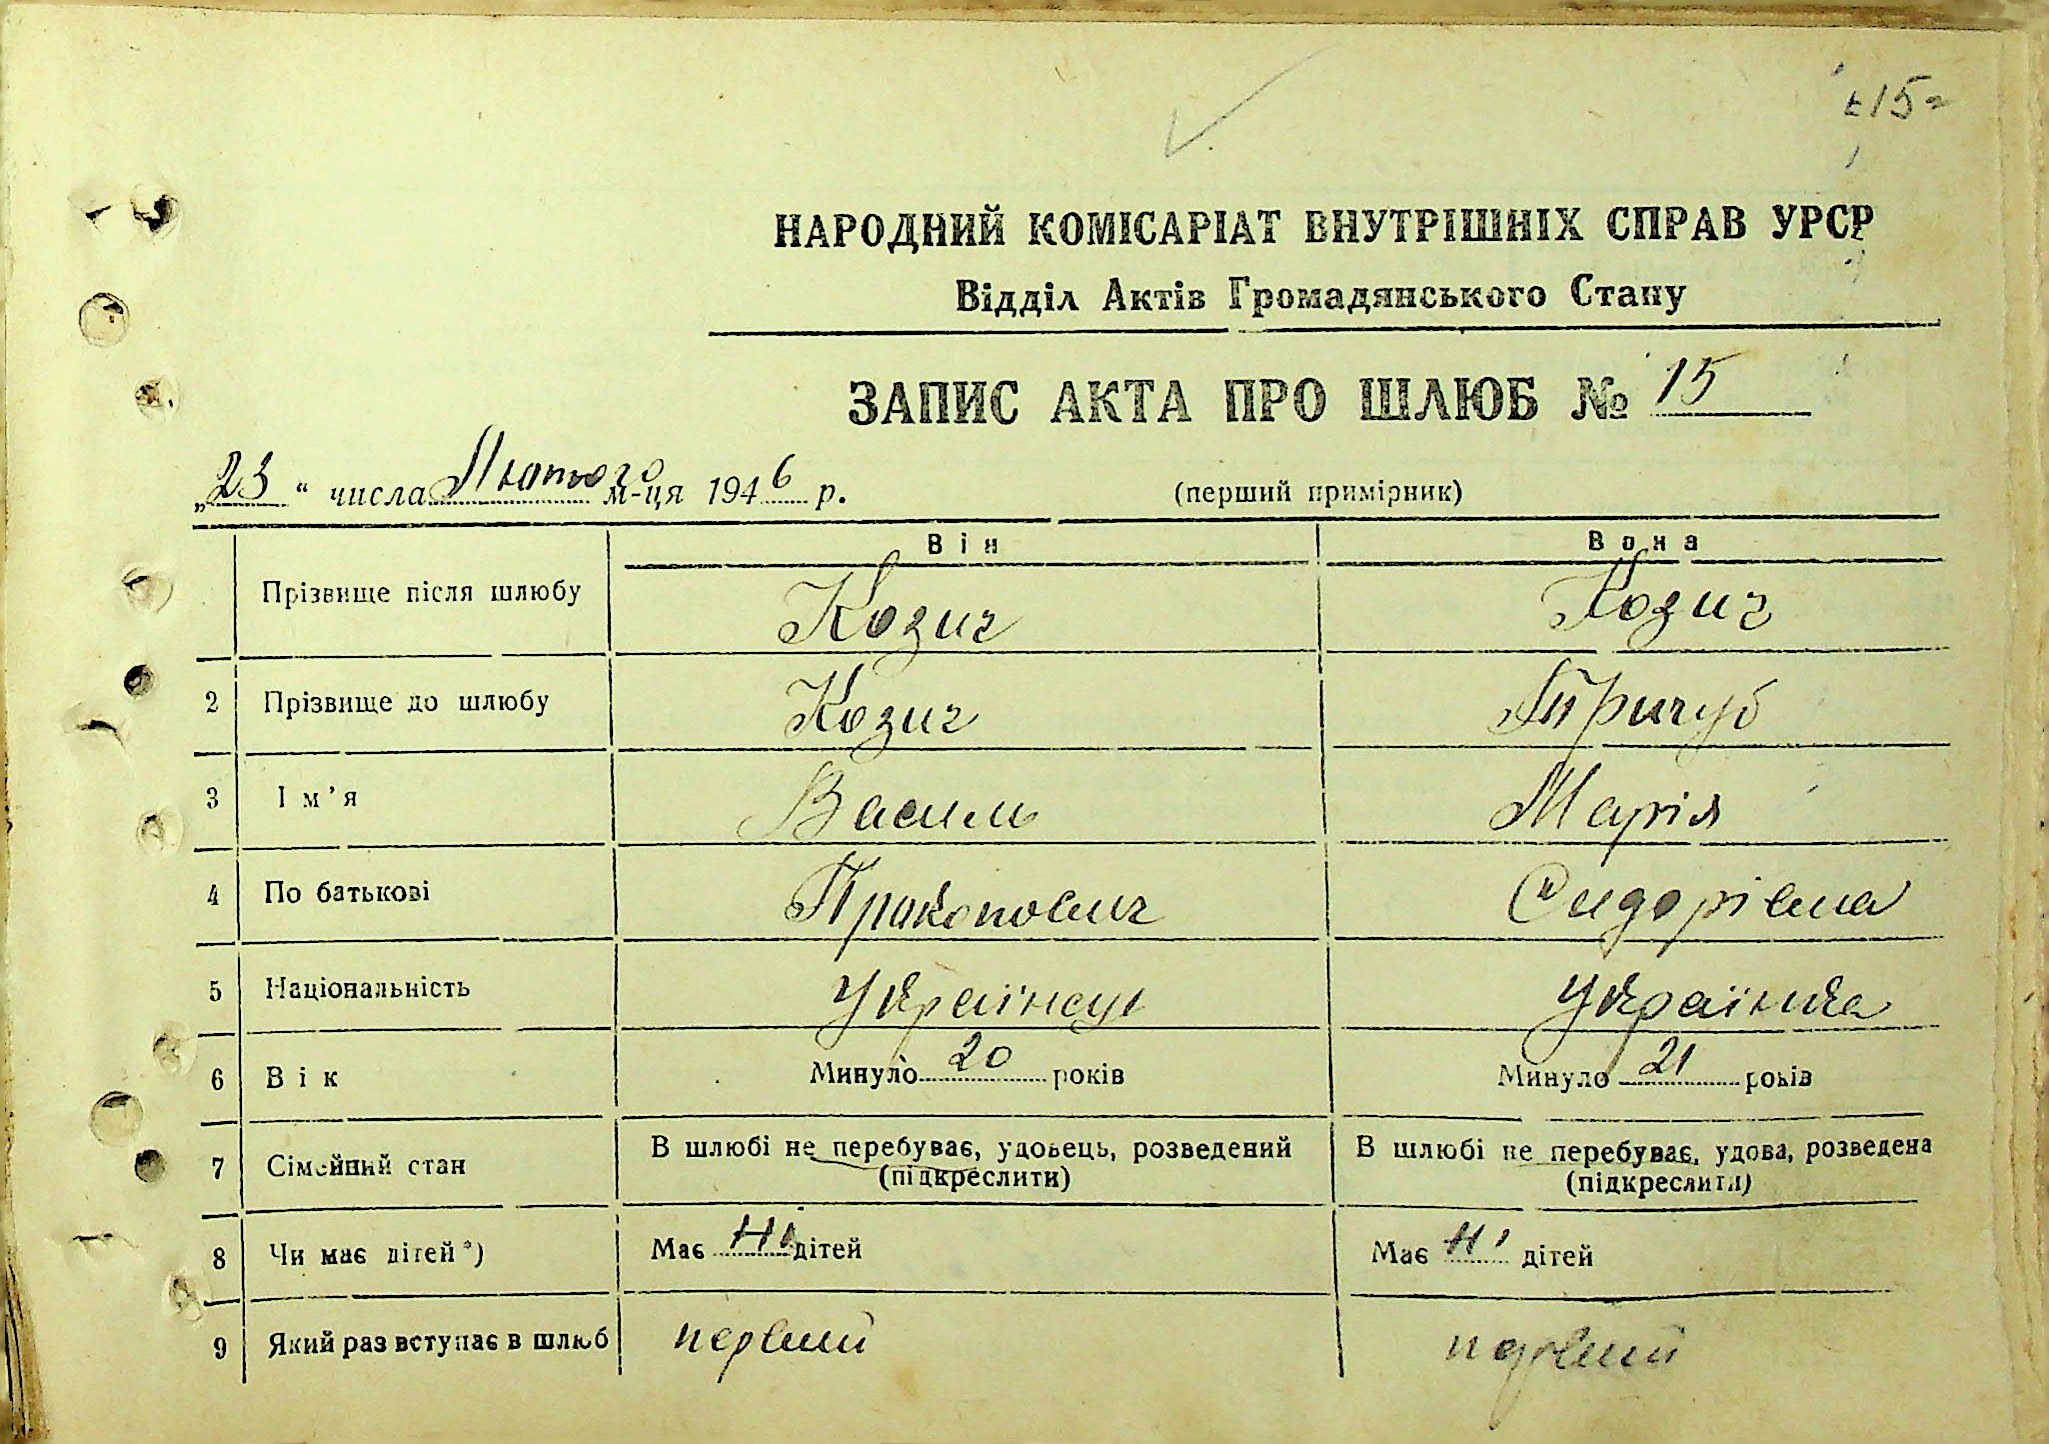 15
НАРОДНИЙ КОМІСАРІАТ ВНУТРІШНІХ СПРАВ УРСР
Відділ Актів Громадянського Стану
ЗАПИС АКТА ПРО ШЛЮБ № 15
„23“ числа Лютого м-ця 1946 р. (перший примірник)
Він Вона
Прізвище після шлюбу Козич Козич
2 Прізвище до шлюбу Козич
3 Ім’я Василь Марія
4 По батькові Прокопович Сидорівна
5 Національність Українець Українка
6 Вік Минуло 20 років Минуло 21 років
7 Сімейний стан В шлюбі не перебуває, удовець, розведений В шлюбі не перебуває, удова, розведена
(підкреслити) (підкреслити)
8 Чи має дітей*) Має Ні дітей Має Ні дітей
9 Який раз вступає в шлюб первий первий